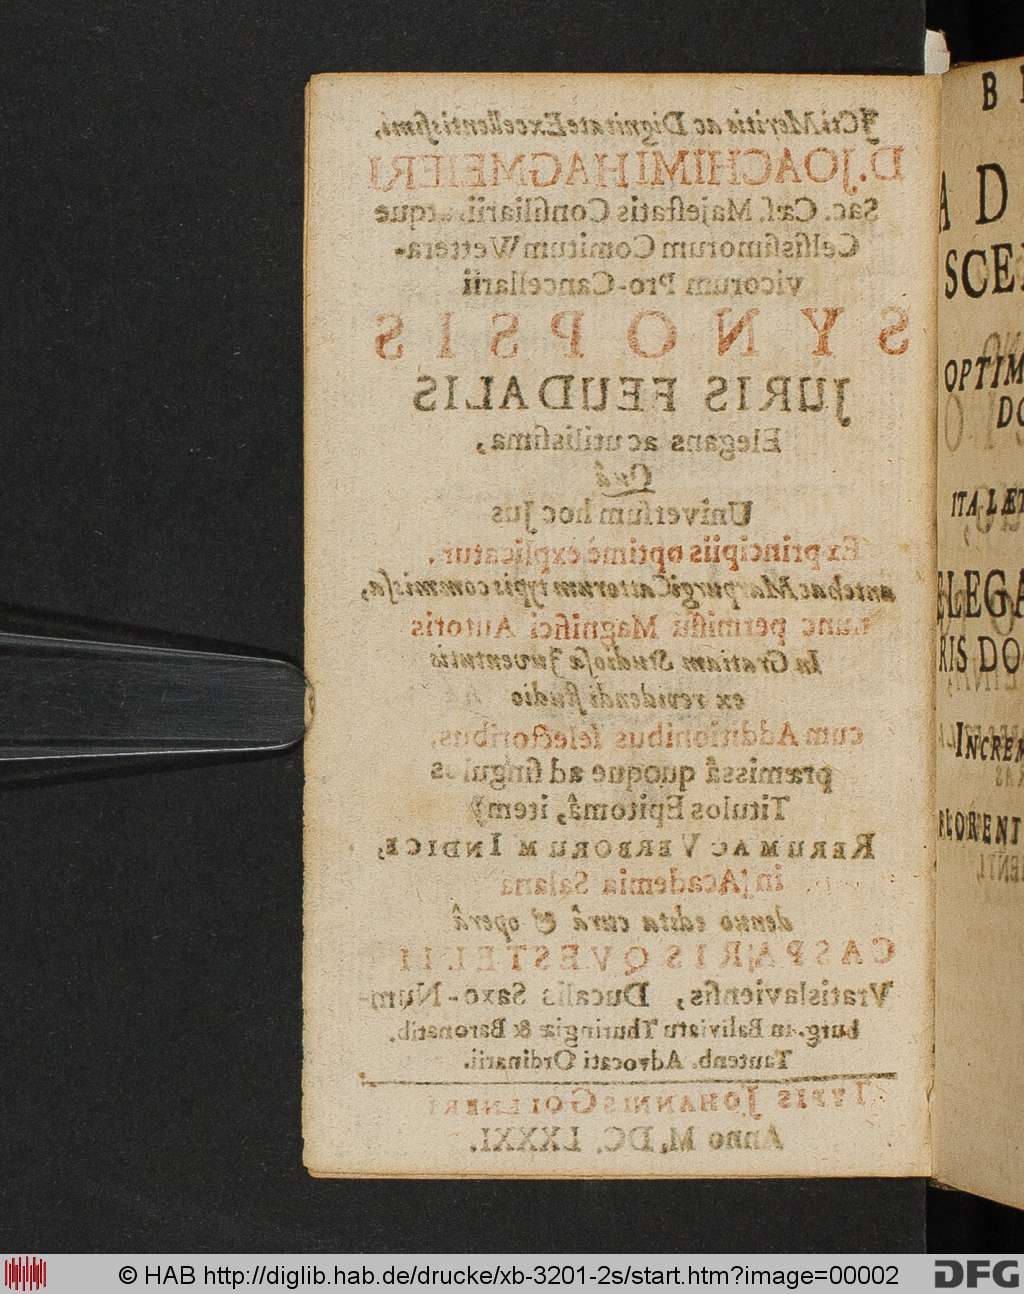 JCti Meritis ac Dignitate Excellentissimi,
D. JOACHIMI HAGMEIERI
Sac. Cæs. Majeſtatis Conſiliarii atque
Celſisſimorum Comitum Wettera-
vicorum Pro-Cancellarii
SYNOPSIS
JURIS FEUDALIS
Elegans ac utilisſima,
Quâ
Univerſum hoc Jus
Ex principiis optimè explicatur,
antehac Marpurgi Cattorum typis commiſſa,
nunc permiſſu Magnifici Autoris
In Gratiam Studioſæ Juventutis
ex revidendi ſtudio
cum Additionibus ſelectoribus,
præmissâ quoque ad ſingulos
Titulos Epitomâ, item
RERUM AC VERBORUM INDICE,
in Academia Salana
denuo edita curâ & operâ
CASPARIS QUESTELII
Vratislavienſis, Ducalis Saxo-Num-
burg. in Baliviatu Thuringiæ & Baronatib.
Tautenb. Advocati Ordinarii.
TYPIS JOHANNIS
Anno M. DC. LXXXI.
B
AD
SCE
OPTIM
DO
ITA LÆT
ELEGA
RIS DO
INCREM
FLORENT
© HAB http://diglib.hab.de/drucke/xb-3201-2s/start.htm?image=00002
DFG